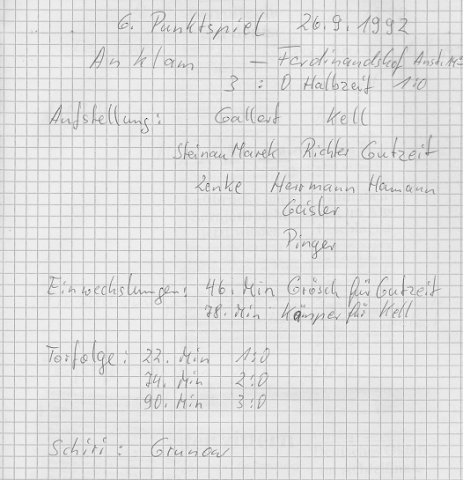 6. Punktspiel 26.9.1992
Anklam - Ferdinandshof
3 : 0 Halbzeit 1:0
Aufstellung: Gallert Kell
Steinau Marek Richter Gutzeit
Zenke Herrmann Hamann
Geisler
Pinger
Einwechslungen: 46. Min Grösch für Gutzeit
78. Min Kämper für Kell
Torfolge: 22. Min 1:0
74. Min 2:0
90. Min 3:0
Schiri: Grunow